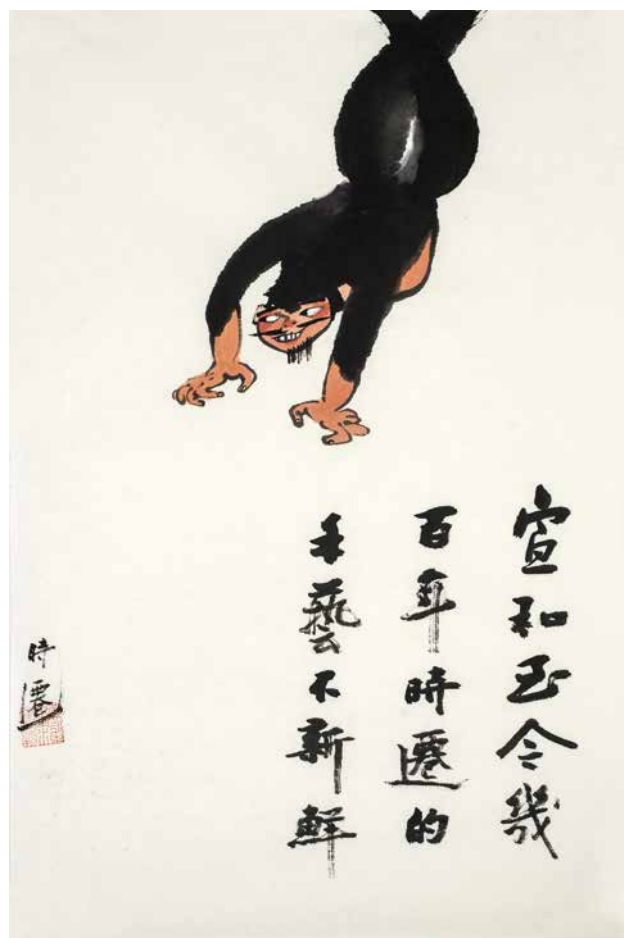 宣和至今幾
百年時遷的
手藝不新鮮
時遷